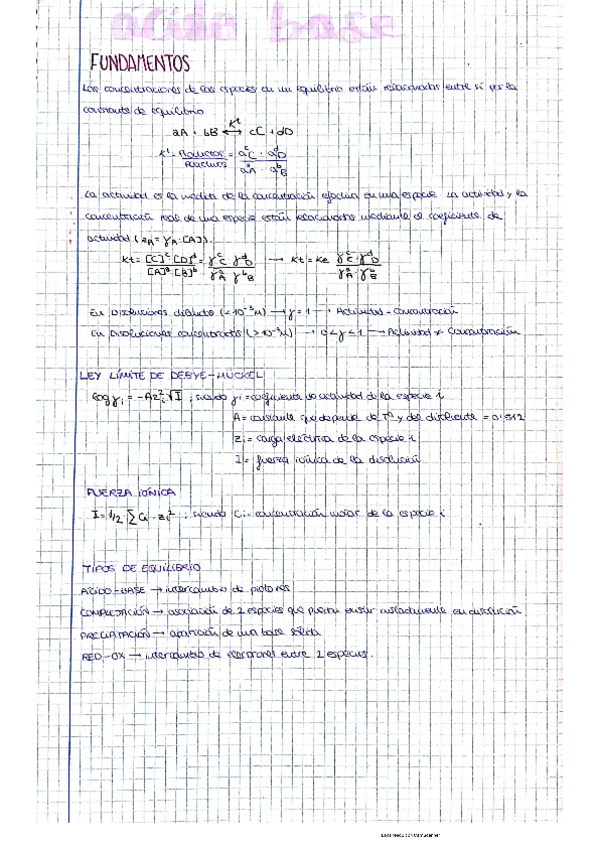 ácido base
FUNDAMENTOS
Las concentraciones de las especies en un equilibrio están relacionadas entre sí por la
constante de equilibrio
aA + bB ⟷ cC + dD
Kt
Kt = Productos/Reactivos = a^c_C · a^d_D / a^a_A · a^b_B
La actividad es la medida de la concentración efectiva en una especie. La actividad y la
concentración real de una especie están relacionados mediante el coeficiente de
actividad (aA = γA · [A]).
Kt = [C]^c · [D]^d / [A]^a · [B]^b = γ^c_C γ^d_D / γ^a_A γ^b_B → Kt = Ke γ^c_C · γ^d_D / γ^a_A · γ^b_B
En Disoluciones diluidas (<10⁻³M) → γ = 1 → Actividad = Concentración
En Disoluciones concentradas (>10⁻³M) → 0 < γ < 1 → Actividad ≠ Concentración
LEY LÍMITE DE DEBYE-HÜCKEL
log γi = -Az²i √I ; siendo γi = coeficiente de actividad de la especie i
A = constante que depende de Tª y del disolvente = 0'512
zi = carga eléctrica de la especie i
I = fuerza iónica de la disolución
FUERZA IÓNICA
I = 1/2 ∑ Ci · zi² ; siendo Ci = concentración molar de la especie i
TIPOS DE EQUILIBRIO
ÁCIDO-BASE → intercambio de protones
COMPLEJACIÓN → asociación de 2 especies que pueden existir aisladamente en disolución
PRECIPITACIÓN → aparición de una fase sólida
RED-OX → intercambio de electrones entre 2 especies.